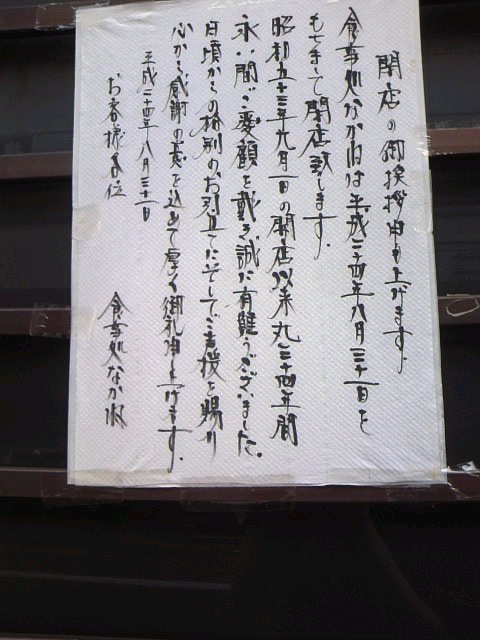 閉店の御挨拶申し上げます。
食事処なか川は平成二十四年八月三十一日を
もちまして閉店致します。
昭和五十三年九月一日の開店以来丸三十四年間
永い間ご愛顧を戴き誠に有難うございました。
日頃からの格別のお引立てにそしてご支援を賜り
心から感謝の意を込めて厚く御礼申し上げます。
平成二十四年八月三十一日
お客様各位
食事処なか川